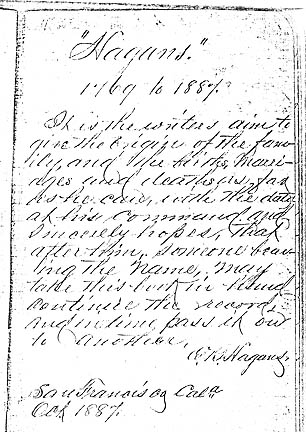 "Hagans."
1769 to 1887.
It is the writers aim to
give the origin of the fam-
ily and the births, marri-
ages and deaths as far
as he can, with the data
at his command and
sincerely hopes, that
after him, someone bear-
ing the name, may
take this book in hand
continue the record
and in time pass it on
to another.
Hagans,
San Francisco Cala
Oct 1887.